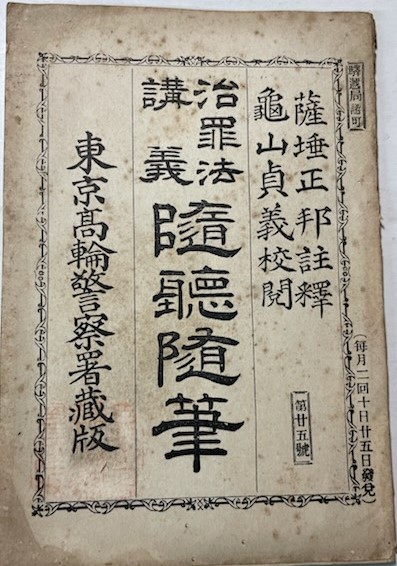 驛遞局認可
薩埵正邦註釋
龜山貞義校閱
第廿五號
(每月二回十日廿五日發兌)
治罪法
講義
隨聽隨筆
東京高輪警察署藏版